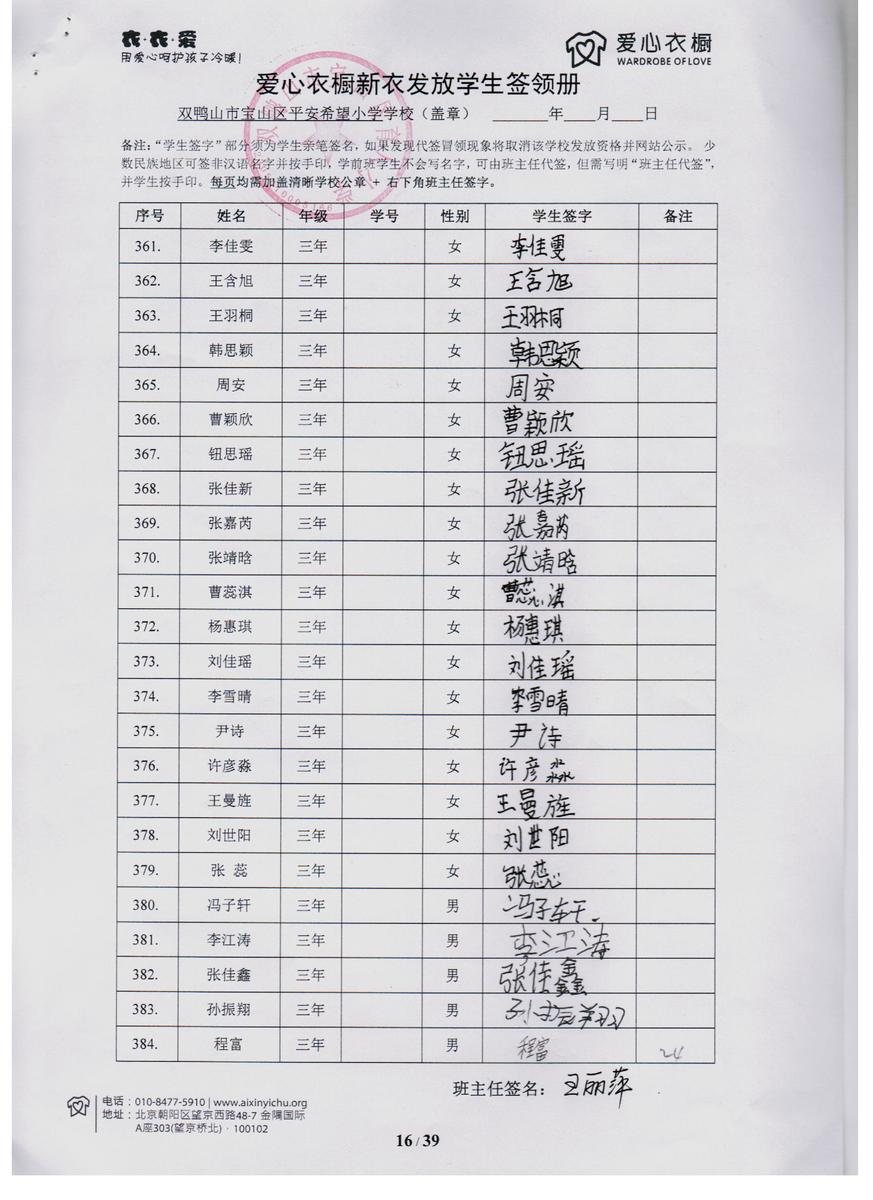 衣·衣·爱
用爱心呵护孩子冷暖!
爱心衣橱
WARDROBE OF LOVE
爱心衣橱新衣发放学生签领册
双鸭山市宝山区平安希望小学学校（盖章） ______年____月____日
备注：“学生签字”部分须为学生亲笔签名，如果发现代签冒领现象将取消该学校发放资格并网站公示。 少
数民族地区可签非汉语名字并按手印，学前班学生不会写名字，可由班主任代签，但需写明“班主任代签”，
并学生按手印。每页均需加盖清晰学校公章 + 右下角班主任签字。
序号 姓名 年级 学号 性别 学生签字 备注
361. 李佳雯 三年 女 李佳雯
362. 王含旭 三年 女 王含旭
363. 王羽桐 三年 女 王羽桐
364. 韩思颖 三年 女 韩思颖
365. 周安 三年 女 周安
366. 曹颖欣 三年 女 曹颖欣
367. 钮思瑶 三年 女 钮思瑶
368. 张佳新 三年 女 张佳新
369. 张嘉芮 三年 女 张嘉芮
370. 张靖晗 三年 女 张靖晗
371. 曹蕊淇 三年 女 曹蕊淇
372. 杨惠琪 三年 女 杨惠琪
373. 刘佳瑶 三年 女 刘佳瑶
374. 李雪晴 三年 女 李雪晴
375. 尹诗 三年 女 尹诗
376. 许彦淼 三年 女 许彦淼
377. 王曼旌 三年 女 王曼旌
378. 刘世阳 三年 女 刘世阳
379. 张 蕊 三年 女 张蕊
380. 冯子轩 三年 男 冯子轩
381. 李江涛 三年 男 李江涛
382. 张佳鑫 三年 男 张佳鑫
383. 孙振翔 三年 男 孙振翔
384. 程富 三年 男 程富 24
班主任签名： 王丽萍
电话：010-8477-5910 | www.aixinyichu.org
地址：北京朝阳区望京西路48-7 金隅国际
A座303(望京桥北)·100102
16 / 39